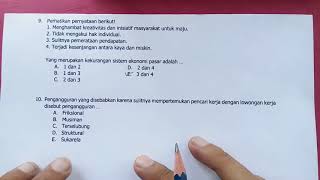 9. Perhatikan pernyataan berikut!
1. Menghambat kreativitas dan inisiatif masyarakat untuk maju.
2. Tidak mengakui hak individual.
3. Sulitnya pemerataan pendapatan.
4. Terjadi kesenjangan antara kaya dan miskin.
Yang merupakan kekurangan sistem ekonomi pasar adalah ...
A. 1 dan 2 D. 2 dan 4
B. 1 dan 3 E. 3 dan 4
C. 2 dan 3
10. Pengangguran yang disebabkan karena sulitnya mempertemukan pencari kerja dengan lowongan kerja
disebut pengangguran ...
A. Friksional
B. Musiman
C. Terselubung
D. Struktural
E. Sukarela